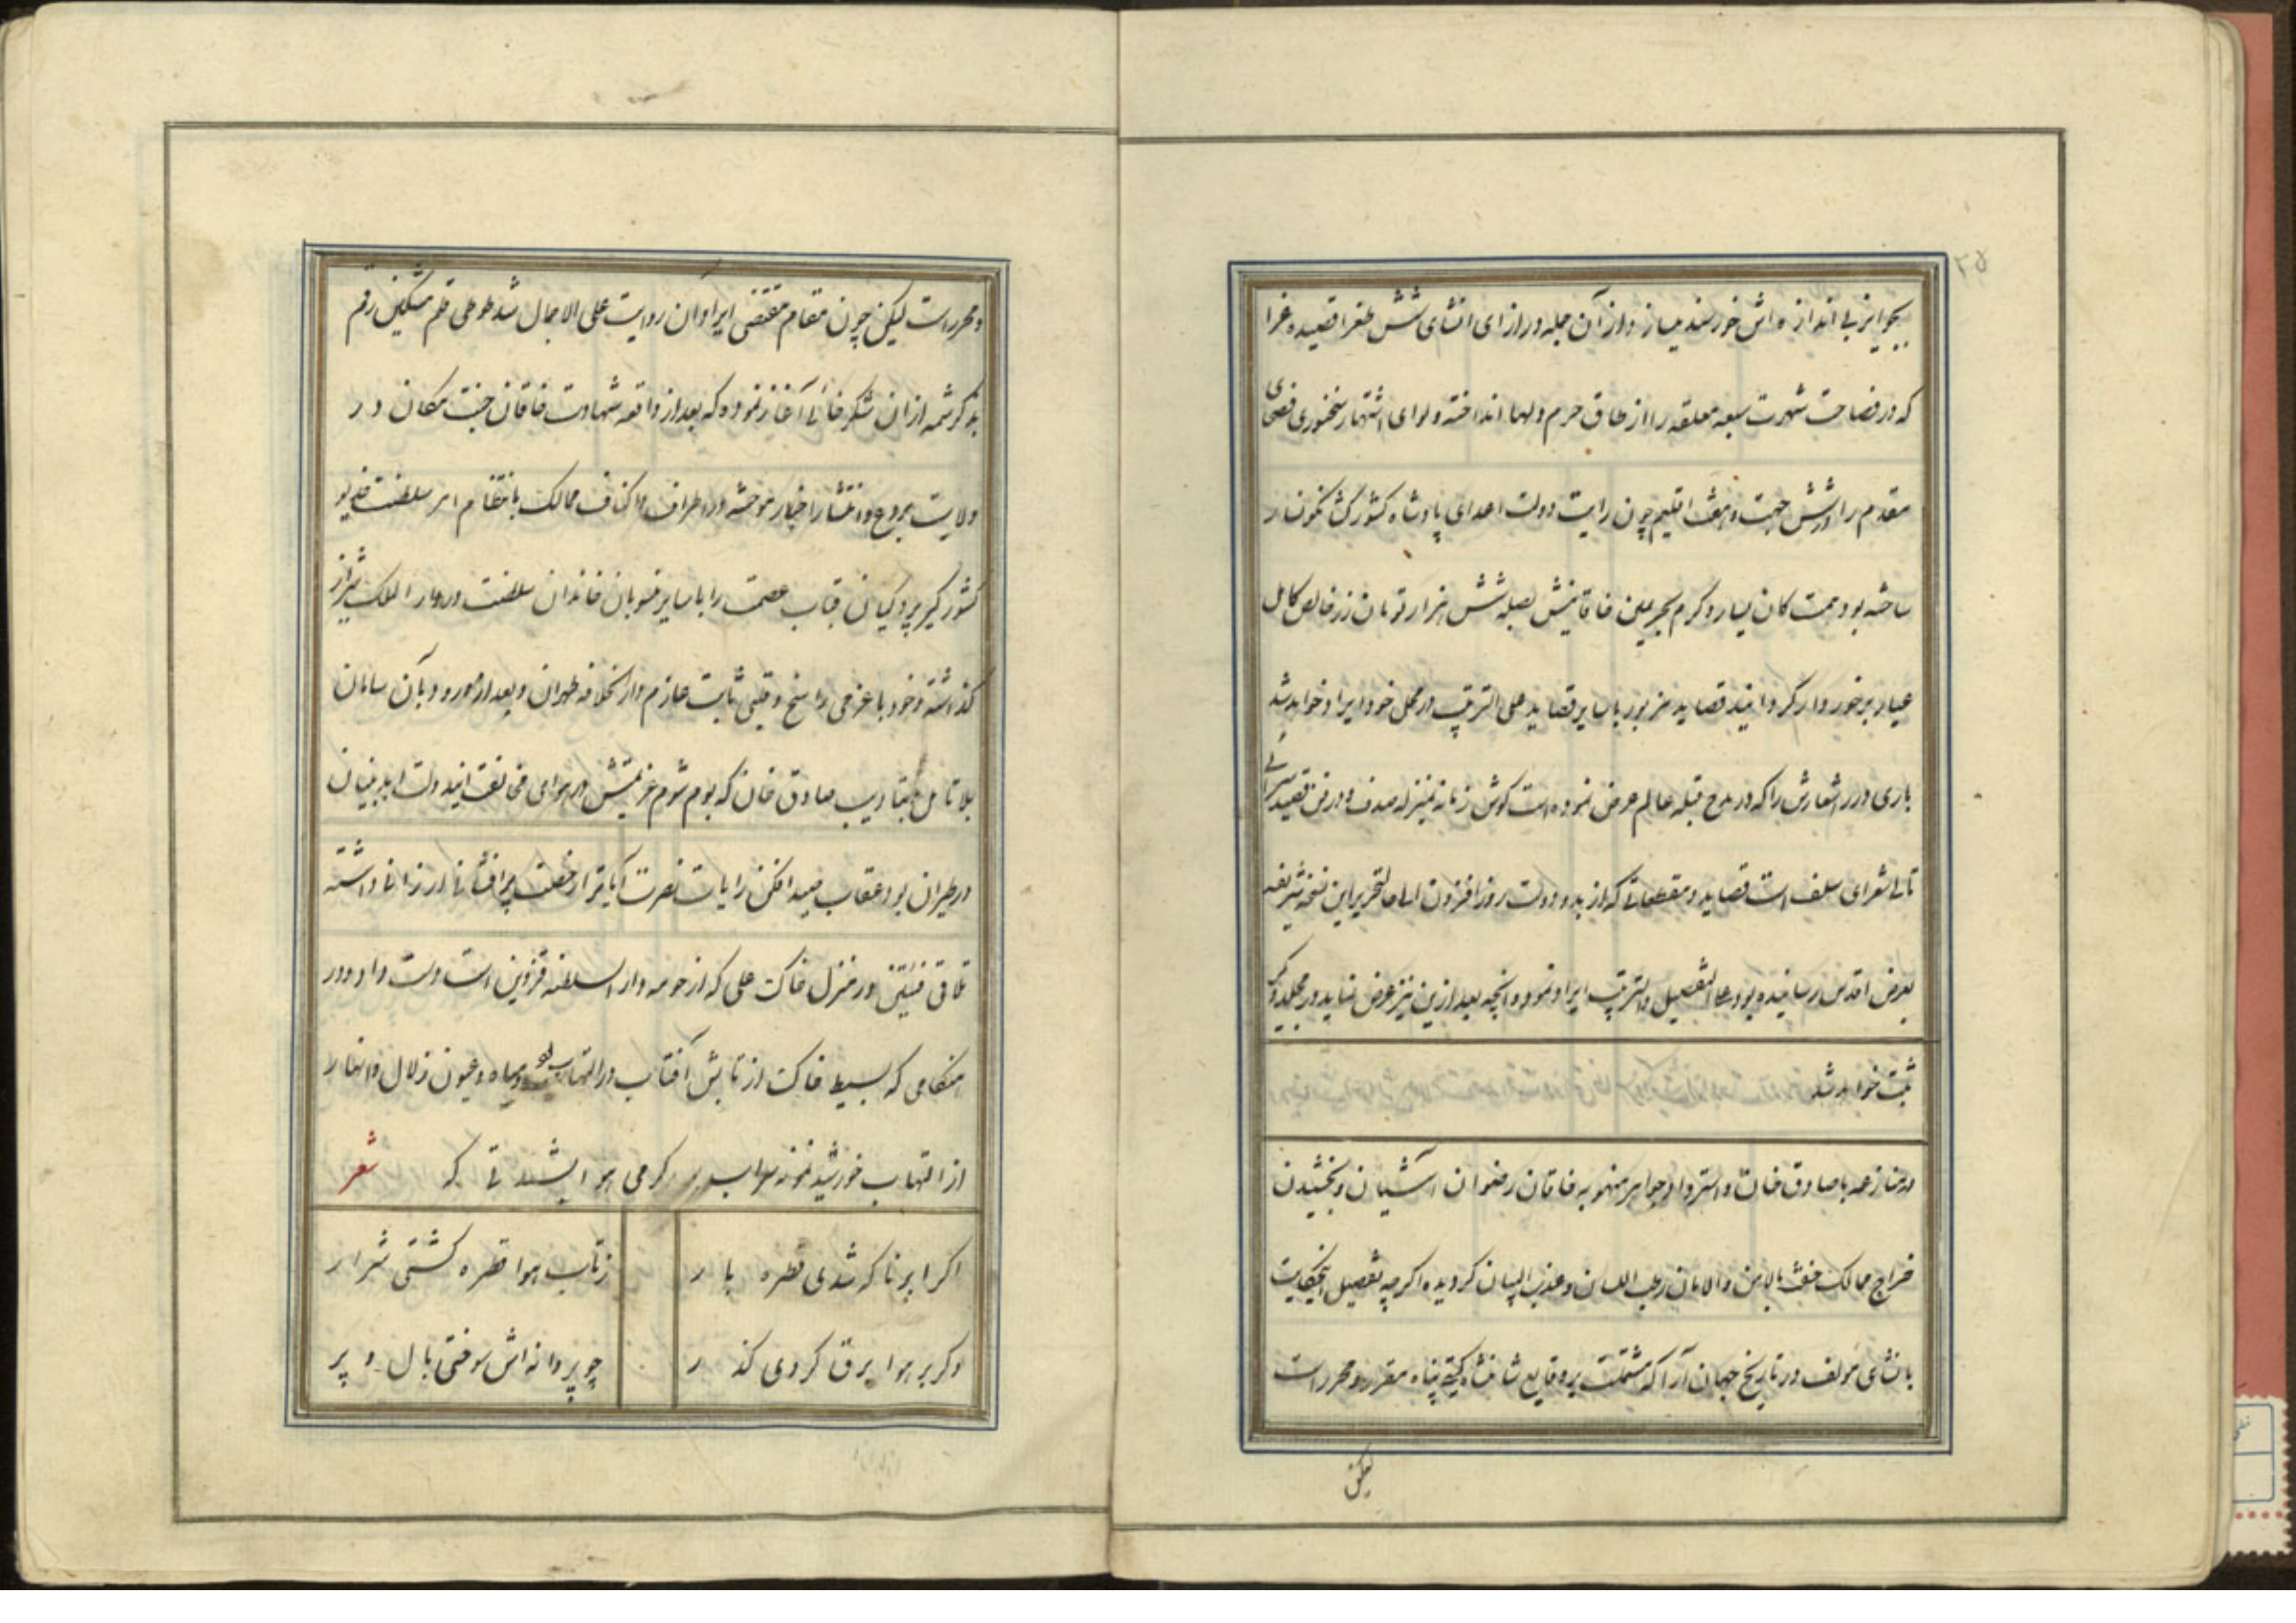 ۲۵
بجوایز بی اندازه اش خورسند میسازد و از آن جمله در ازای انشای شش طغرا قصیده غرا
که در فصاحت شهرت سبعه معلقه را از طاق حرم دلها انداخته و لوای اشتهار سخنوری فصحای
مقدم را در شش جهت و هفت اقلیم چون رایت دولت اعدای پادشاه کشورگشا نکونسار
ساخته بود همت کان یسار و کرم بحر یمین خاقانیش بصله شش هزار تومان زر خالص کامل
عیار برخوردار گردانید قصاید مزبور با سایر قصاید علی الترتیب در محل خود ایراد خواهد شد
باری درر اشعارش را که در مدح قبله عالم عرض نموده است کوش زمانه بمنزله صدف و در فن قصیده سرائی
تالی شعرای سلف است قصاید و مقطعاتی که از بدو دولت روز افزون الی حال تحریر این نسخه شریفه
بعرض اقدس رسانیده بود علی التفصیل والترتیب ایراد نمود و آنچه بعد ازین نیز عرض نماید در مجلد دیگر
ثبت خواهد شد
در منازعه با صادق خان و استرداد جواهر منهوبه خاقان رضوان آشیان و بخشیدن
خراج ممالک هفت بالامن والامان رطب اللسان و عذب البیان کردیده اگرچه تفصیل اینحکایت
بانشای مولف در تاریخ جهان آرا که مشتملست بر وقایع شاهنشاه گیتی پناه مقرر و محرر است
لیکن
و محرر است لیکن چون مقام مقتضی ایراد آن روایت علی الاجمال شد طوطی قلم مشکین رقم
بذکر شمه از ان شکرخائی آغاز نموده که بعد از واقعه شهادت خاقان جنت مکان در
ولایت بروع و انتشار اخبار موحشه در اطراف و اکناف ممالک بانتظام امر سلطنت خدیو
کشورگیر پردکیان قباب عصمت را با سایر منسوبان خاندان سلطنت در دار الملک شیراز
گذاشته و خود با عزمی راسخ و قلبی ثابت عازم دار الخلافه طهران و بعد از ورود بآن سامان
بلا تامل بتادیب صادق خان که بوم شوم عزیمتش در هوای مخالفت ایندولت ابد بنیان
در طیران بود عقاب صید افکن رایات نصرت آیات را رخصت پرافشانی ارزانی داشته
تلاقی فئتین در منزل خاک علی که از حومه دار السلطنه قزوین است دست داد و در
هنکامی که بسیط خاک از تابش آفتاب در التهاب بود و میاه و عیون زلال و انهار
از التهاب خورشید نمونه سراب بود گرمی هوا بشدتی که شعر
اگر ابر ناگه شدی قطره بار
زتاب هوا قطره گشتی شرار
وگر بر هوا برق کردی گذر
چو پروانه اش سوختی بال و پر